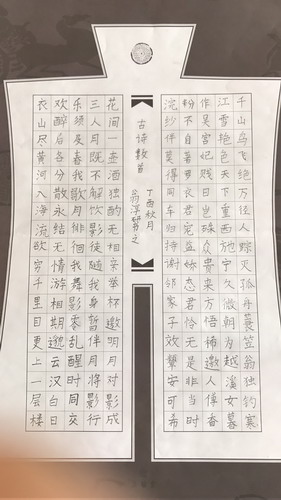 千山鸟飞绝万径人踪灭孤舟蓑笠翁独钓寒
江雪艳色天下重西施宁久微朝为越溪女暮
作吴宫妃贱日岂殊众贵来方悟稀邀人傅香
粉不自著罗衣君宠益娇态君怜无是非当时
浣纱伴莫得同车归持谢邻家子效颦安可希
古诗数首
丁酉秋月
花间一壶酒独酌无相亲举杯邀明月对影成
三人月既不解饮影徒随我身暂伴月将影行
乐须及春我歌月徘徊我舞影零乱醒时同交
欢醉后各分散永结无情游相期邈云汉白日
衣山尽黄河入海流欲穷千里目更上一层楼